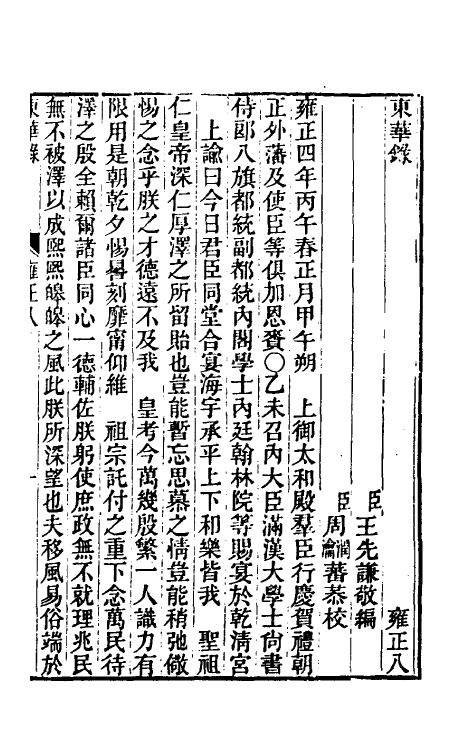 東華錄 雍正八
臣王先謙敬編
臣周潤蕃瀹蕃恭校
雍正四年丙午春正月甲午朔 上御太和殿羣臣行慶賀禮朝
正外藩及使臣等俱加恩賚〇乙未召內大臣滿漢大學士尙書
侍郞八旗都統副都統內閣學士內廷翰林院等賜宴於乾清宮
上諭曰今日君臣同堂合宴海宇承平上下和樂皆我 聖祖
仁皇帝深仁厚澤之所留貽也豈能暫忘思慕之情豈能稍弛儆
惕之念乎朕之才德遠不及我 皇考今萬幾殷繁一人識力有
限用是朝乾夕惕晷刻靡甯仰維 祖宗託付之重下念萬民待
澤之殷全賴爾諸臣同心一德輔佐朕躬使庶政無不就理兆民
無不被澤以成熙熙皞皞之風此朕所深望也夫移風易俗端於
東華錄 雍正八 一